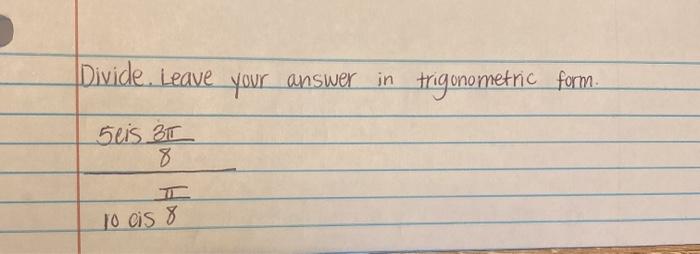 Divide. Leave your answer in trigonometric form.
5cis 3π
8
π
10 cis 8